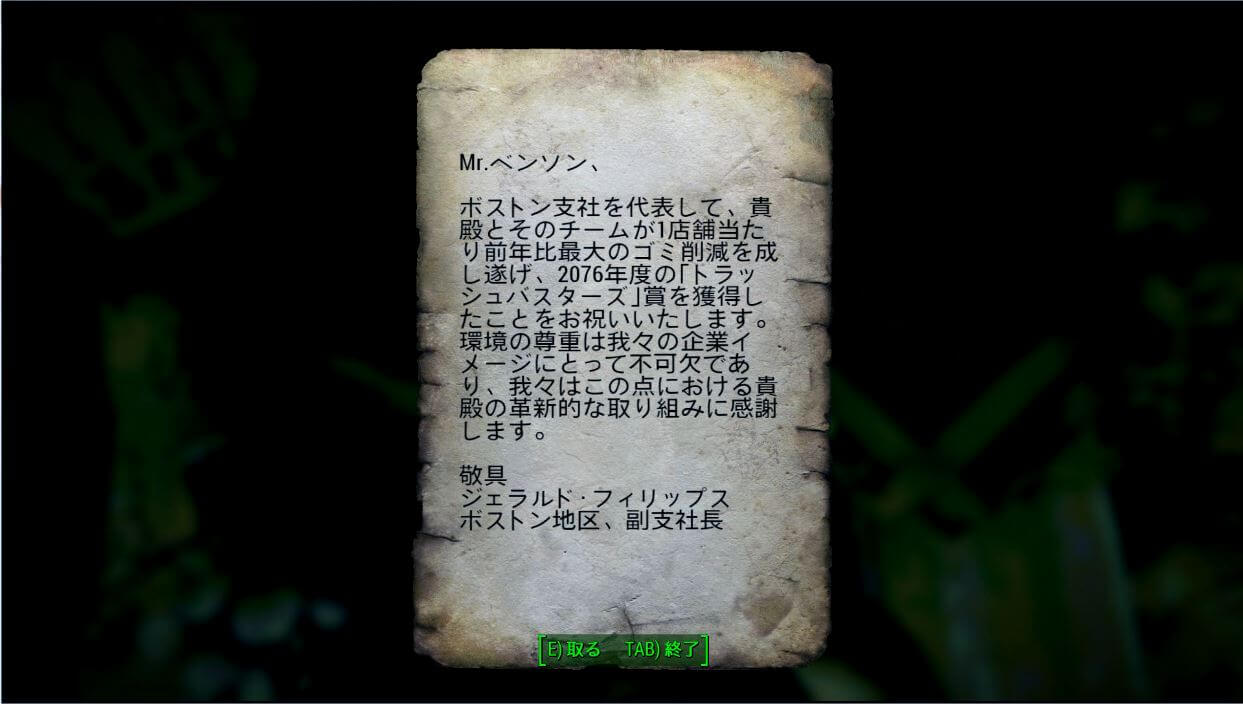 Mr.ベンソン、
ボストン支社を代表して、貴
殿とそのチームが1店舗当た
り前年比最大のゴミ削減を成
し遂げ、2076年度の「トラッ
シュバスターズ」賞を獲得し
たことをお祝いいたします。
環境の尊重は我々の企業イ
メージにとって不可欠であ
り、我々はこの点における貴
殿の革新的な取り組みに感謝
します。
敬具
ジェラルド・フィリップス
ボストン地区、副支社長
E)取る TAB)終了